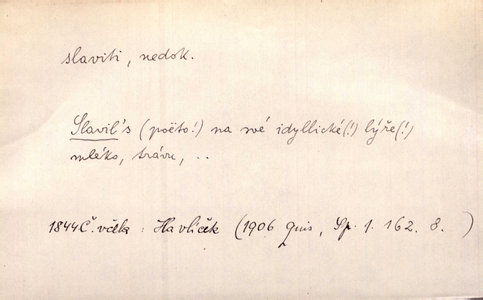 slaviti, nedok.
Slavil's (poëto!) na své idyllické(!) lýře(!)
mléko, trávu, ..
1844 Č. včela : Havlíček (1906 Quis, Sp. 1. 162. 8. )